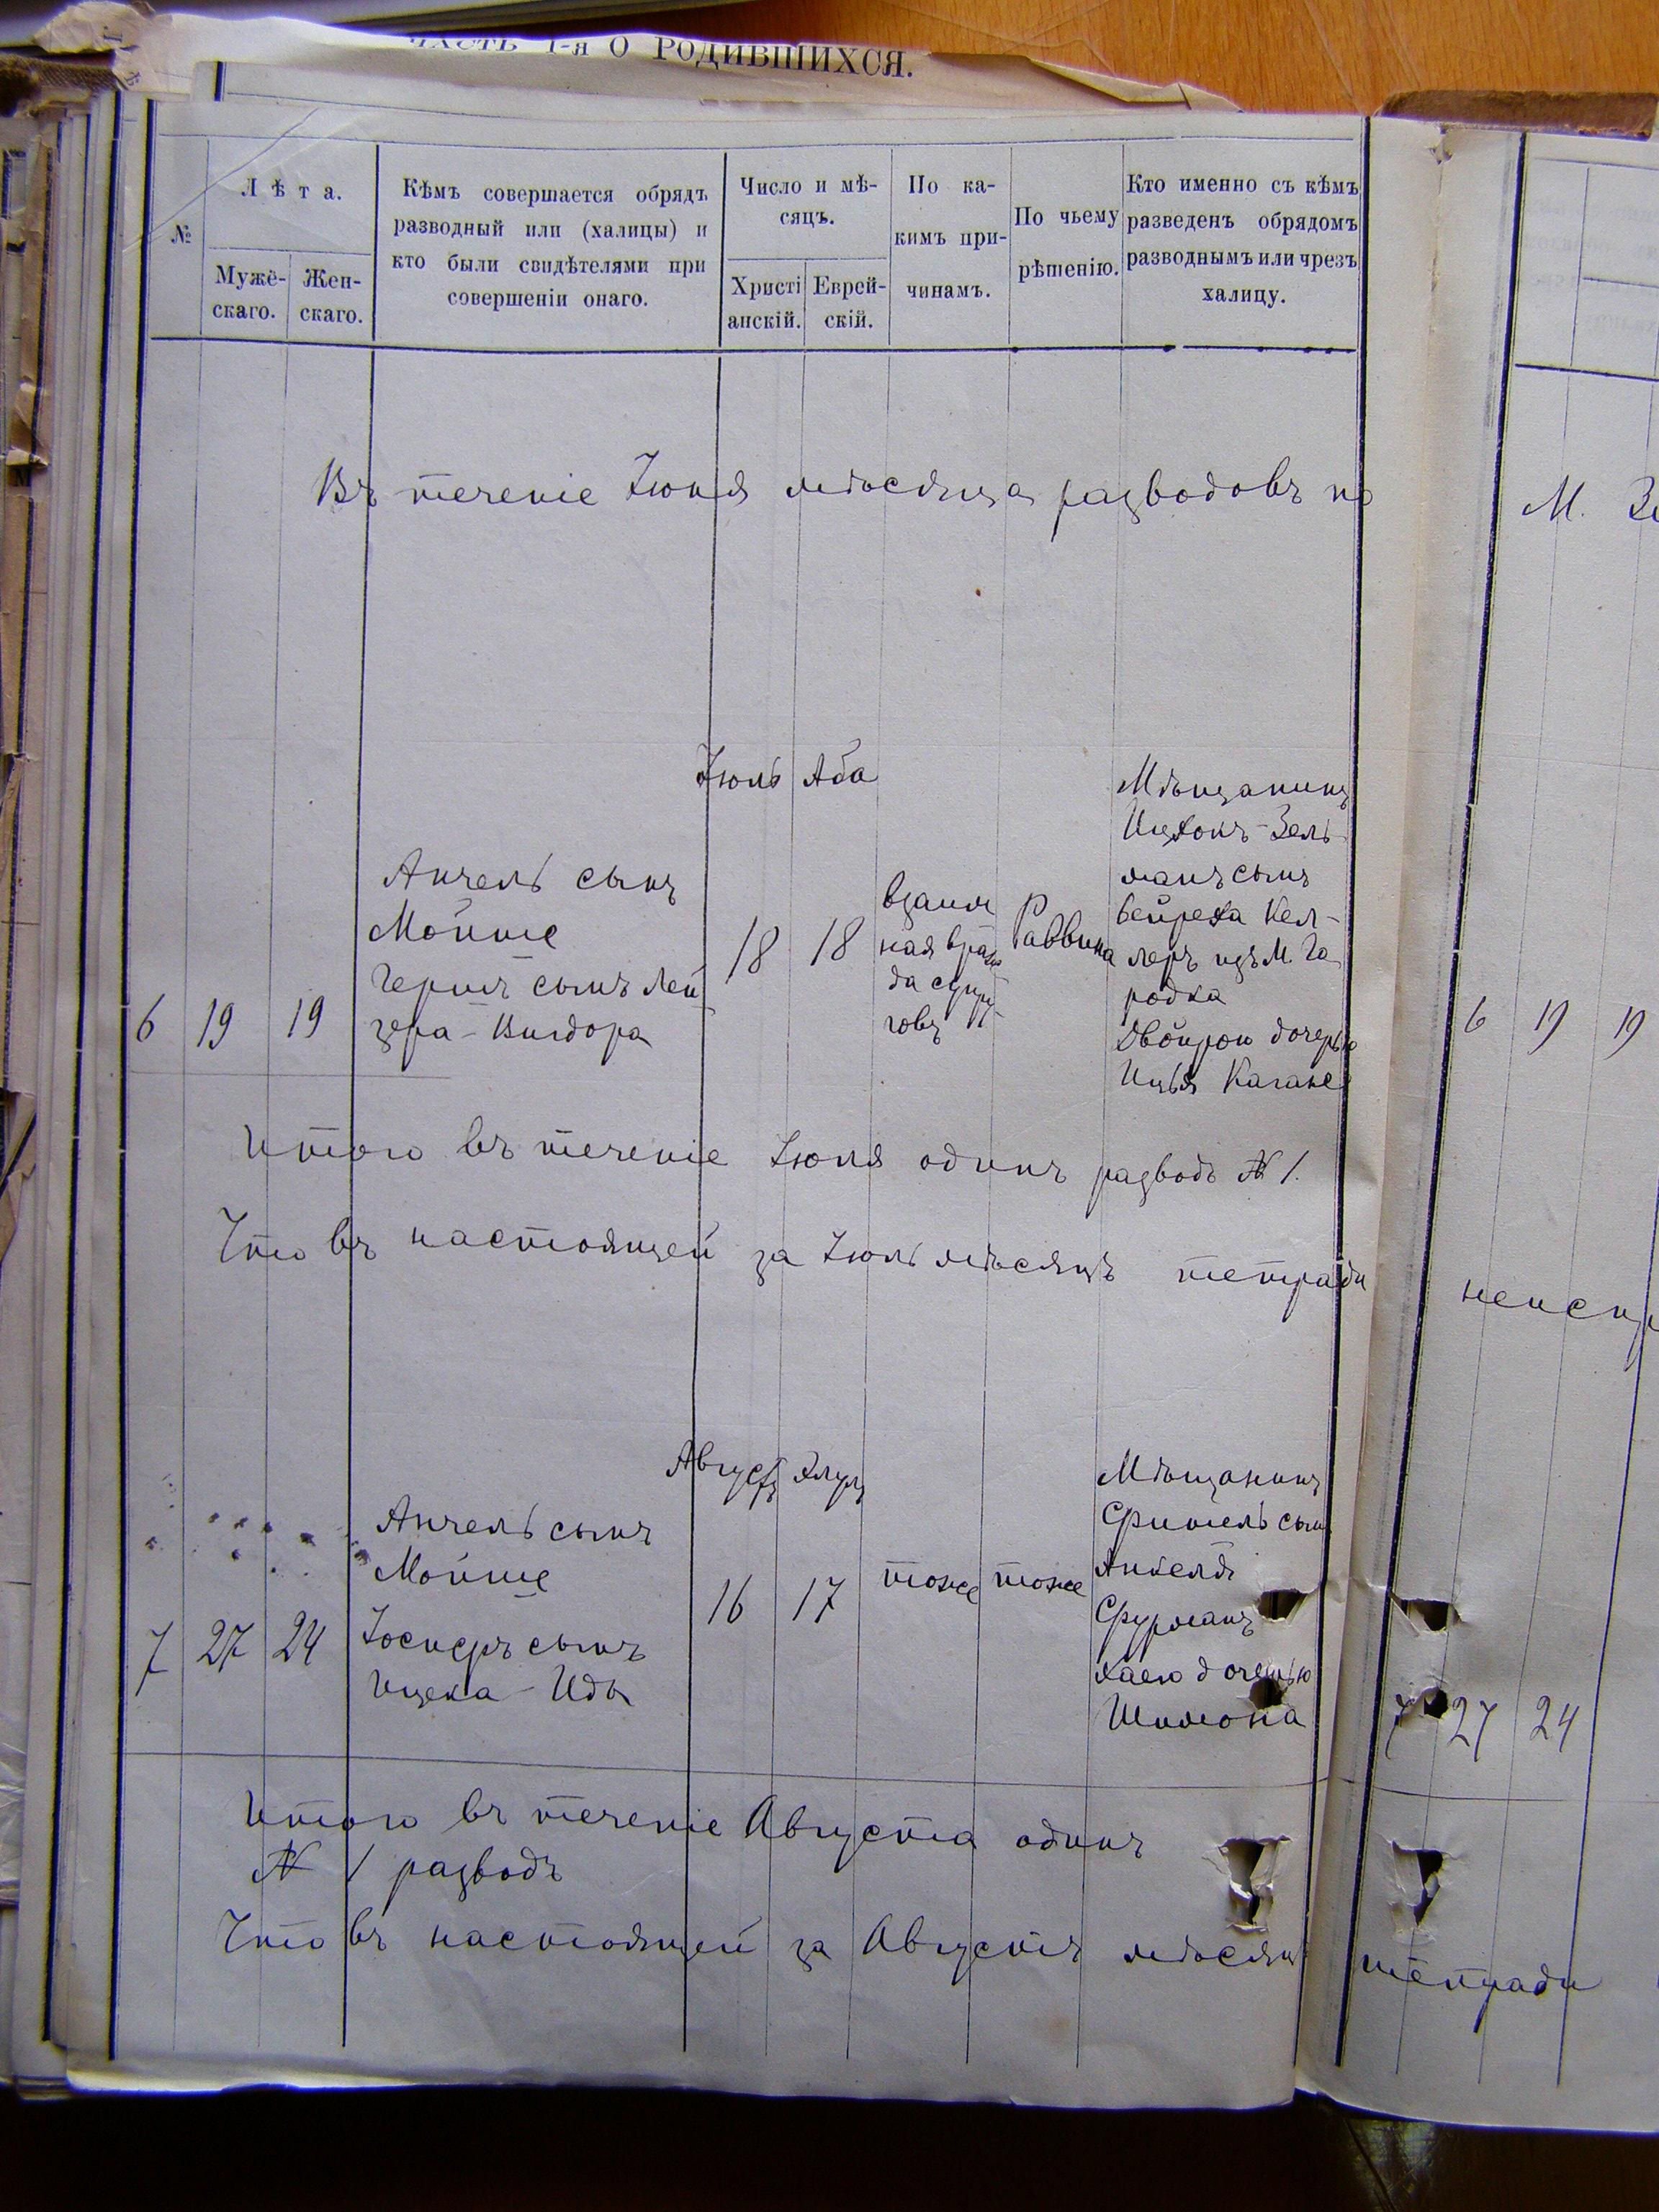 ЧАСТЬ 1-я О РОДИВШИХСЯ.
№
Лѣта.
Мужескаго.
Женскаго.
Кѣмъ совершается обрядъ
разводный или (халицы) и
кто были свидѣтелями при
совершеніи онаго.
Число и мѣ-
сяцъ.
Христі
анскій.
Еврей-
скій.
По ка-
кимъ при-
чинамъ.
По чьему
рѣшенію.
Кто именно съ кѣмъ
разведенъ обрядомъ
разводнымъ или чрезъ
халицу.
Въ теченіе Іюня мѣсяца разводовъ не
М.
Іюль Аба
6 19 19
Анчель сынъ
Мойше
Гершъ сынъ Лей
зера - Вигдора
18 18
взаим
ная враж
да супру
говъ
Раввина
Мѣщанинъ
Ицхокъ-Зель
манъ сынъ
Бейреха Кел-
леръ изъ М. Го
родка
Двойрою дочерью
Ицья Кагане
6 19 19
Итого въ теченіе Іюля одинъ разводъ № 1.
Что въ настоящей за Іюль мѣсяцъ тетради
неиспр
Августъ Элулъ
7 27 24
Анчель сынъ
Мойше
Іосперъ сынъ
Ицека - Иды
16 17
тоже тоже
Мѣщанинъ
Фишель сынъ
Анкеля
Фурманъ
Хаею дочерью
Шимона
7 27 24
Итого въ теченіе Августа одинъ
№ 1 разводъ
Что въ настоящей за Августъ мѣсяцъ тетради